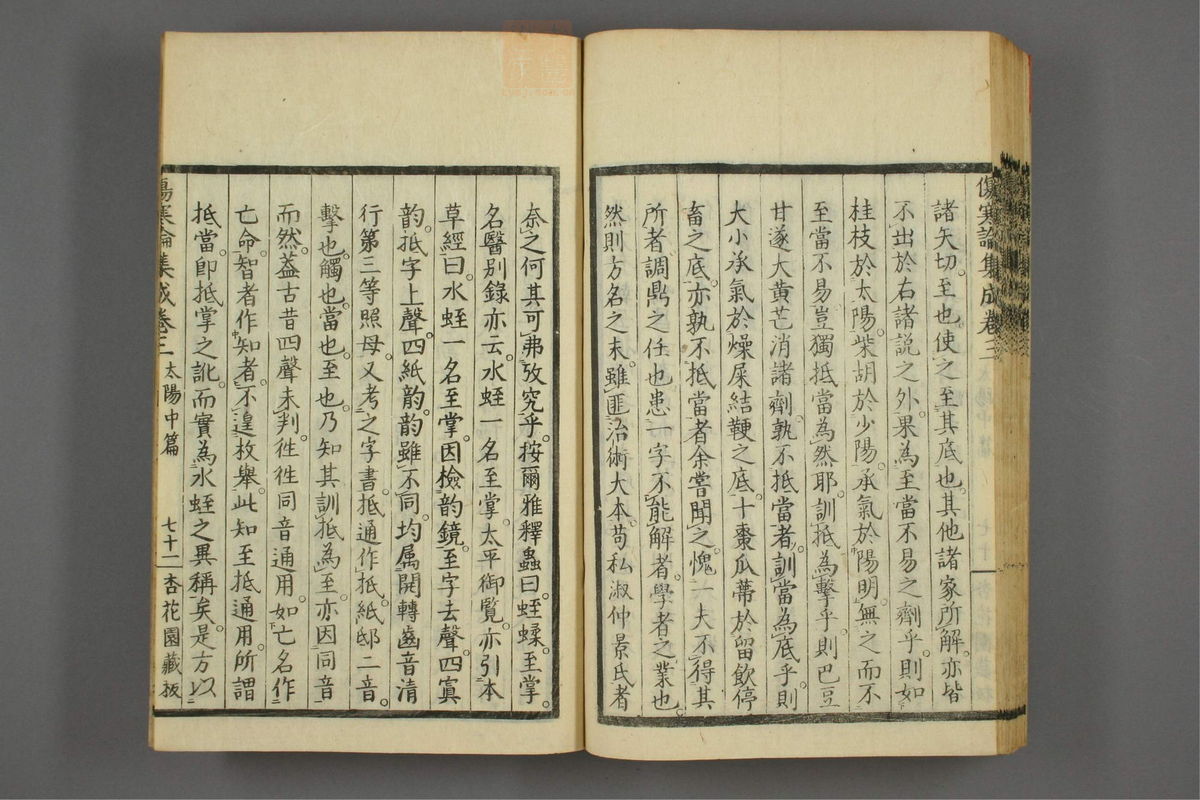 傷寒論集成卷三
諸矢切至也使之至其底也其他諸家所解亦皆
不出於右諸説之外果為至當不易之劑乎則如
桂枝於太陽柴胡於少陽承氣於陽明無之而不
至當不易豈獨抵當為然耶訓抵為擊乎則巴豆
甘遂大黄芒消諸劑孰不抵當者訓當為底乎則
大小承氣於燥屎結鞕之底十棗瓜蔕於留飲停
畜之底亦孰不抵當者余嘗聞之愧一夫不得其
所者調鼎之任也患一字不能解者學者之業也
然則方名之末雖匪治術大本苟私淑仲景氏者
奈之何其可弗攷究乎按爾雅釋蟲曰蛭蝚至掌
名醫别錄亦云水蛭一名至掌太平御覧亦引本
草經曰水蛭一名至掌因檢韵鏡至字去聲四寘
韵抵字上聲四紙韵韵雖不同均属開轉齒音清
行第三等照母又考之字書抵通作抵紙邸二音
擊也觸也當也至也乃知其訓抵為至亦因同音
而然葢古昔四聲未判徃徃同音通用如亡名作
亡命智者作知者不遑枚舉此知至抵通用所謂
抵當即抵掌之訛而實為水蛭之異稱矣是方以
傷寒論集成卷三 太陽中篇 七十二 杏花園藏板